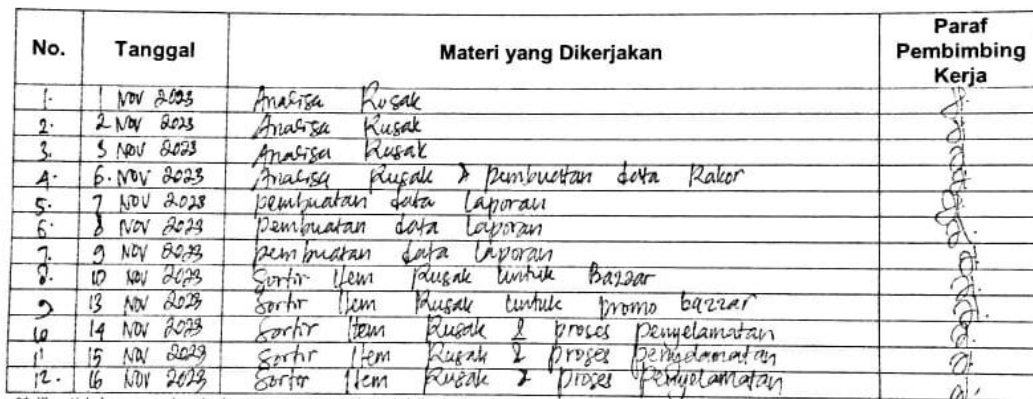 No. Tanggal Materi yang Dikerjakan Paraf Pembimbing Kerja
1. 1 Nov 2023 Analisa Rusak
2. 2 Nov 2023 Analisa Rusak
3. 3 Nov 2023 Analisa Rusak
4. 6. Nov 2023 Analisa Rusak & pembuatan data Rakor
5. 7 Nov 2023 pembuatan data laporan
6. 8 Nov 2023 pembuatan data laporan
7. 9 Nov 2023 pembuatan data laporan
8. 10 Nov 2023 Sortir Item Rusak untuk Bazzar
9 13 Nov 2023 Sortir Item Rusak untuk promo bazzar
10 14 Nov 2023 Sortir Item Rusak & proses penyelamatan
11 15 Nov 2023 Sortir Item Rusak & proses penyelamatan
12. 16 Nov 2023 Sortir Item Rusak & proses penyelamatan